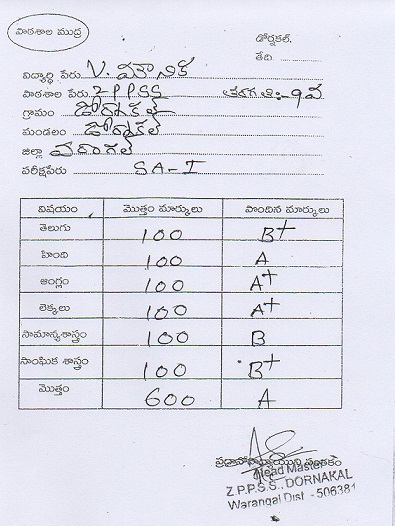 పాఠశాల ముద్ర
డోర్నకల్.
తేది
విద్యార్థి పేరు V. మౌనిక
పాఠశాల పేరు ZPPSS తరగతి:- 9వ
గ్రామం డోర్నకల్
మండలం డోర్నకల్
జిల్లా వరంగల్
పరీక్షపేరు SA-I
విషయం మొత్తం మార్కులు పొందిన మార్కులు
తెలుగు 100 B+
హింది 100 A
ఆంగ్లం 100 A+
లెక్కలు 100 A+
సామాన్యశాస్త్రం 100 B
సాంఘిక శాస్త్రం 100 B+
మొత్తం 600 A
ప్రధానోపాధ్యాయుని సంతకం
Head Master
Z.P.P.S.S., DORNAKAL
Warangal Dist - 506381